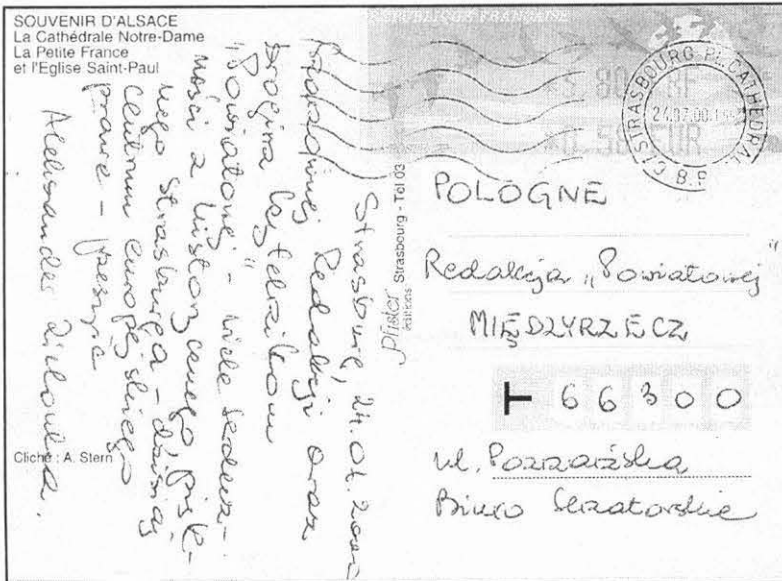 SOUVENIR D'ALSACE
La Cathédrale Notre-Dame
La Petite France
et l'Eglise Saint-Paul
Strasburg, 24.07.2000
Redakcji oraz
Drogim Czytelnikom
"Powiatowej" - wiele serdecz-
ności z historycznego, pięk-
nego Strasburga - dzisiaj
centrum europejskiego
prawe - przesyła
Aleksander
Cliché : A. Stern
Pfister éditions Strasbourg - Tél 03
RÉPUBLIQUE FRANÇAISE
STRASBOURG PL. CATHÉDRALE
POLOGNE
Redakcja „Powiatowej"
MIĘDZYRZECZ
66300
ul. Poznańska
Biuro Senatorskie